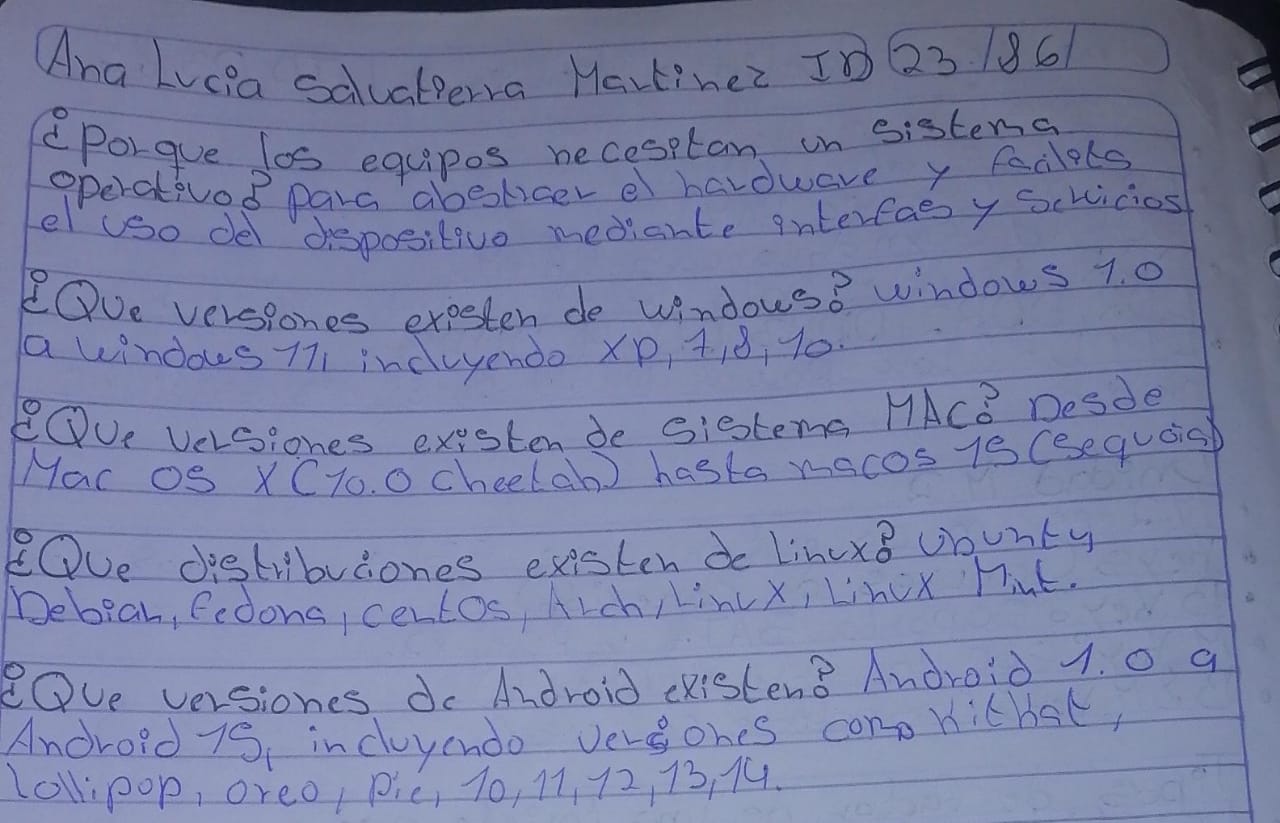 Ana Lucia Salvatierra Martinez ID 23186
¿Porque los equipos necesitan un sistema
operativo? para abestraer el hardware y facilita
el uso del dispositivo mediante interfas y servicios
¿Que versiones existen de windows? windows 1.0
a windows 11, incluyendo xp, 7, 8, 10.
¿Que versiones existen de sistema MAC? Desde
Mac OS X (10.0 cheetah) hasta macos 15 (sequoia)
¿Que distribuciones existen de Linux? Ubunty
Debian, fedona, centOS, Arch, Linux, Linux Mint.
¿Que versiones de Android existen? Android 1.0 a
Android 15, incluyendo versiones como KitKat,
lollipop, oreo, pie, 10, 11, 12, 13, 14.